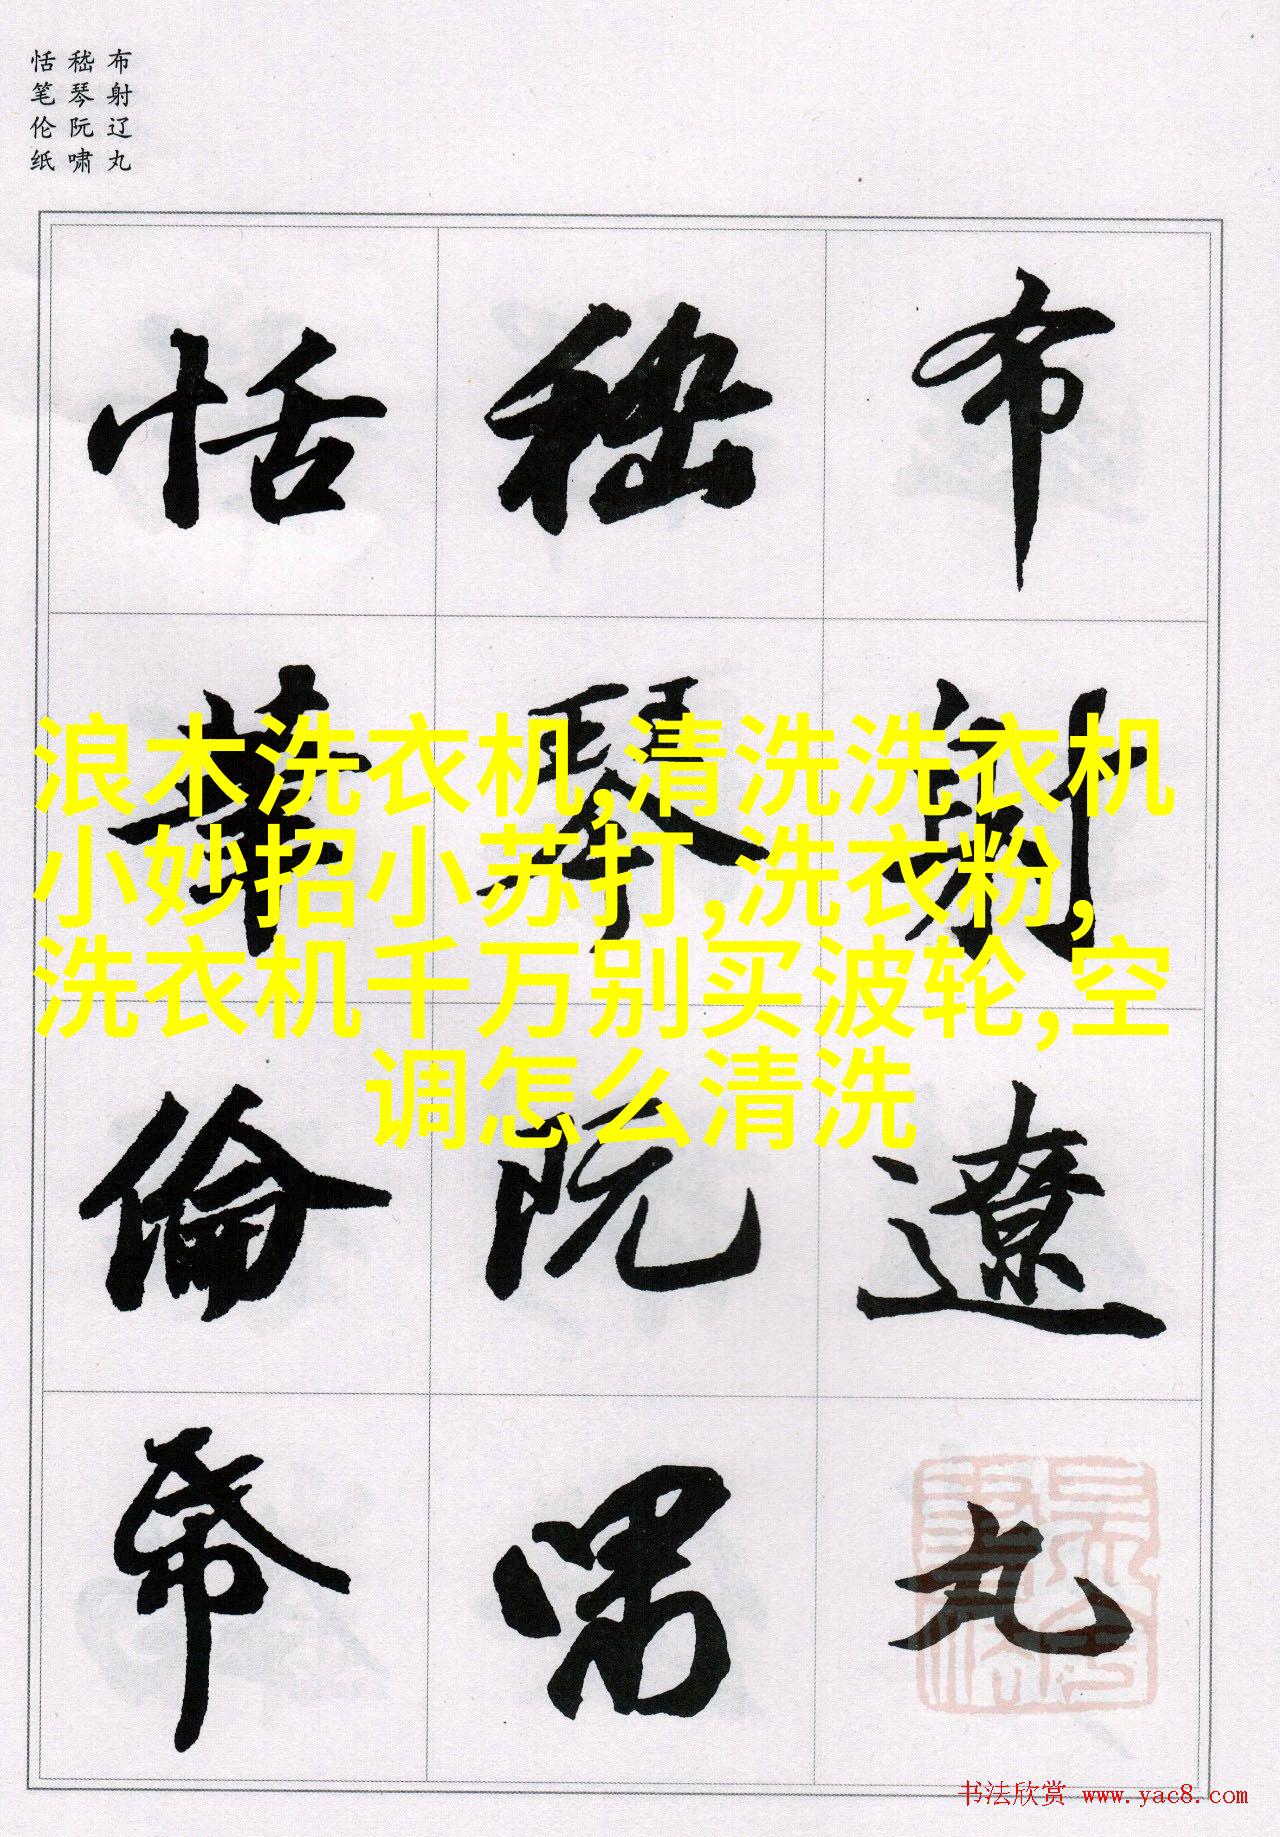 布射辽丸
嵇琴阮啸
恬笔伦纸
布射遼丸
嵇琴阮嘯
恬筆倫帋
浪木洗衣机,清洗洗衣机
小妙招小苏打,洗衣粉,
洗衣机千万别买波轮,空
调怎么清洗
书法欣赏 www.yac8.com